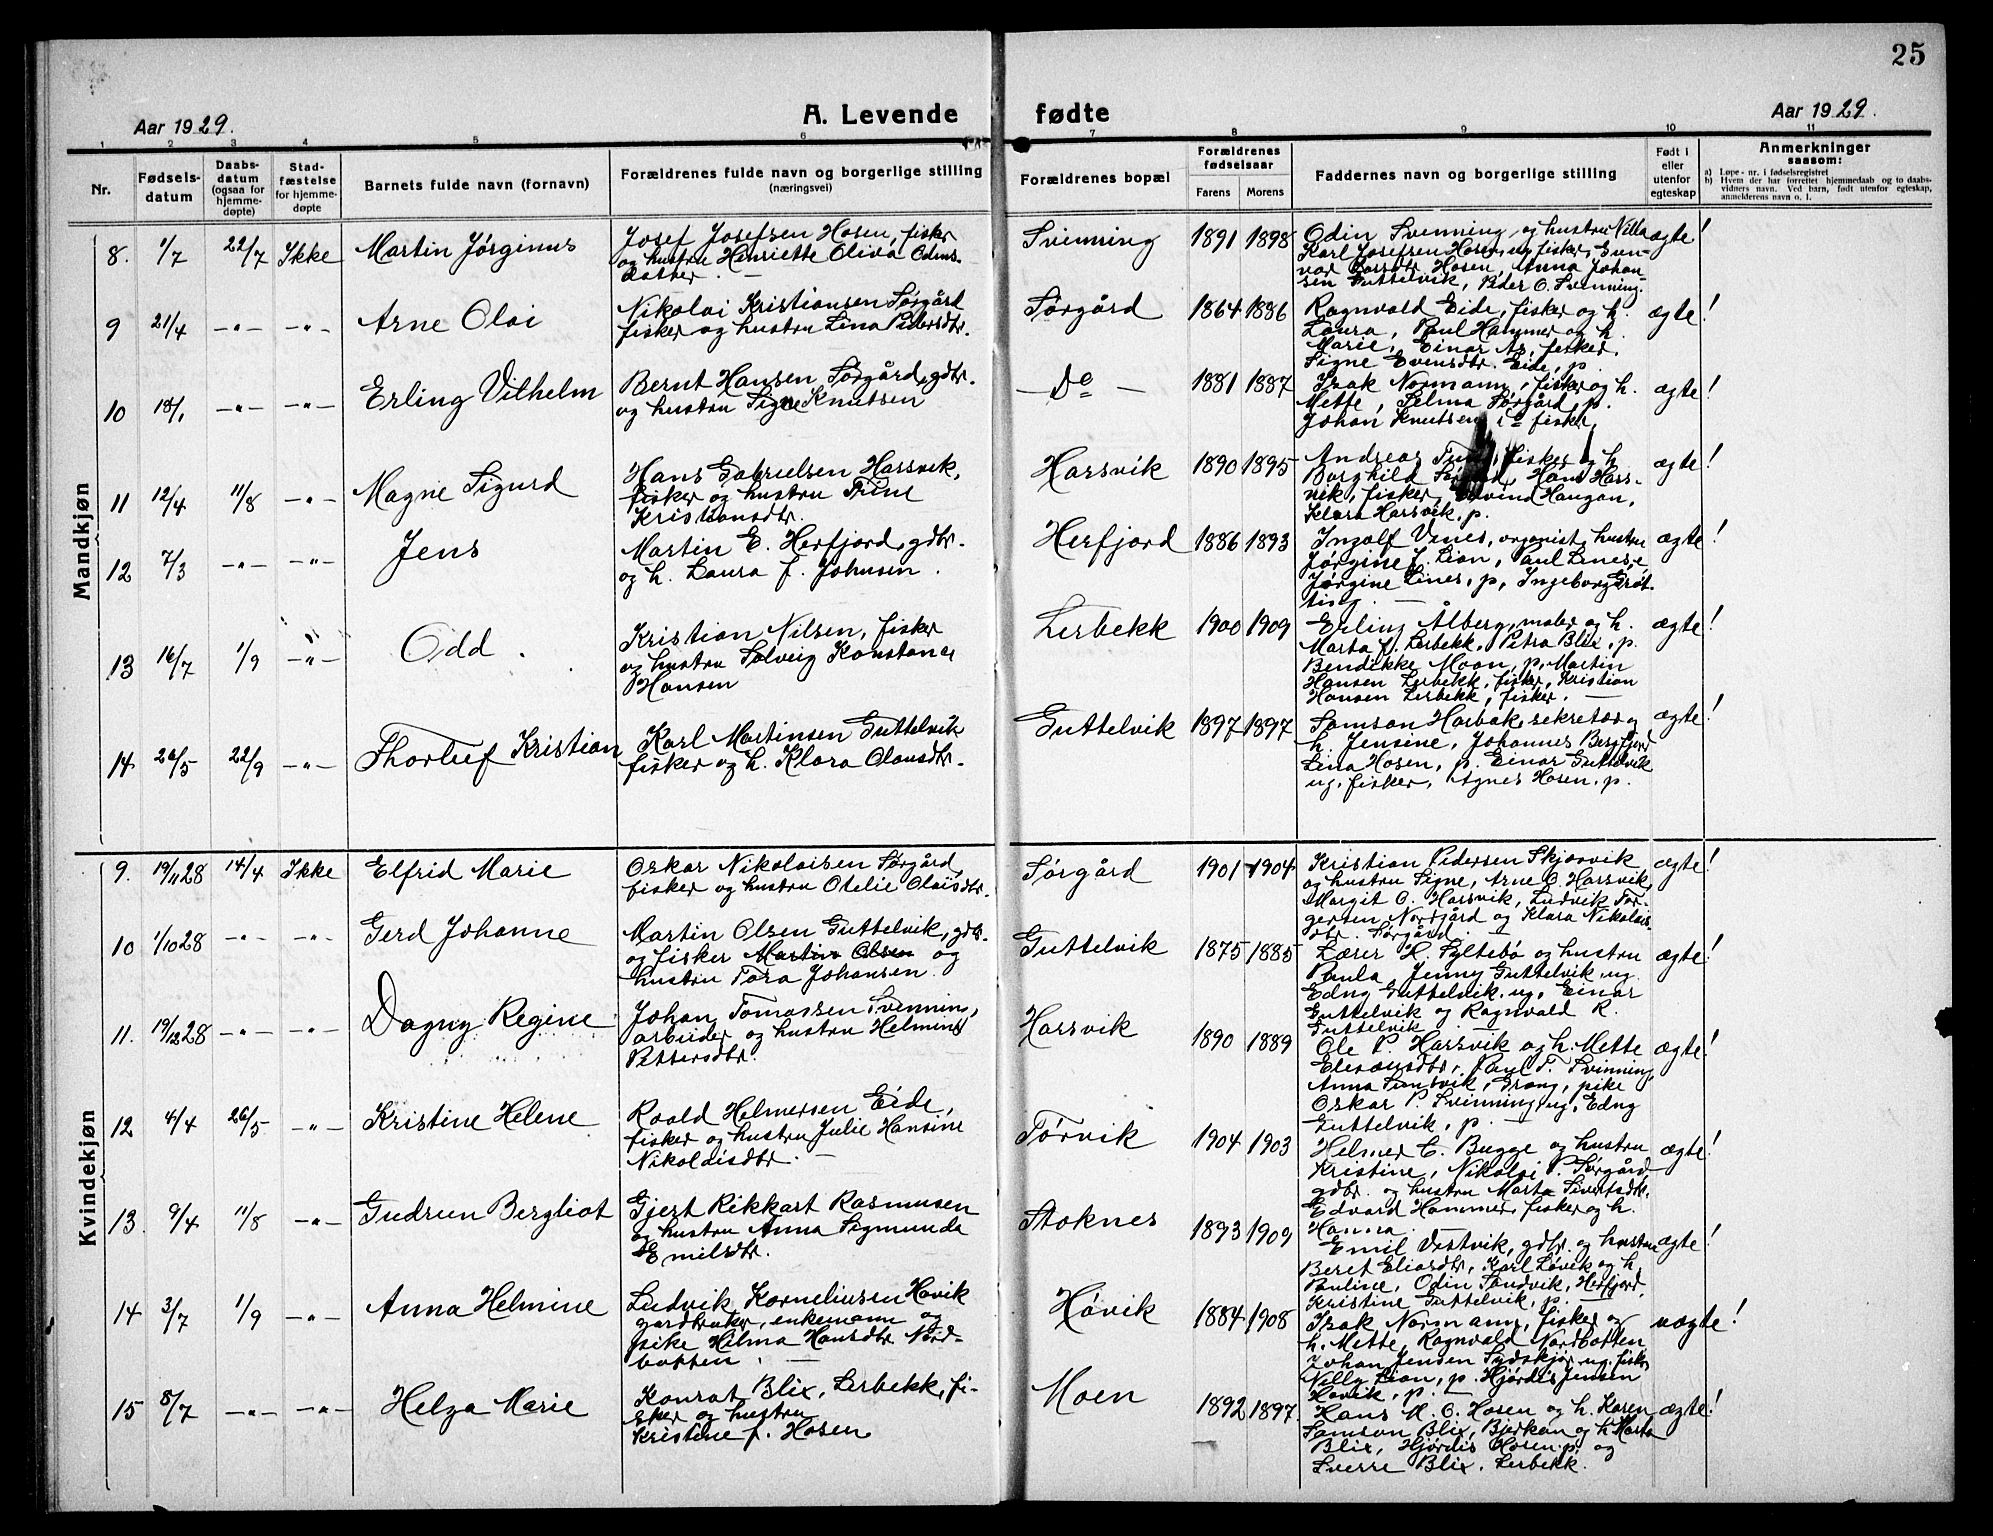 25
A. Levende fødte
Aar 1929.
Aar 1929.
1 2 3 4 5 6 7 8 9 10 11
Nr.
Fødsels-
datum
Daabs-
datum
(ogsaa for
hjemme-
døpte)
Stad-
fæstelse
for hjemme-
døpte
Barnets fulde navn (fornavn)
Forældrenes fulde navn og borgerlige stilling
(næringsvei)
Forældrenes bopæl
Forældrenes
fødselsaar
Farens Morens
Faddernes navn og borgerlige stilling
Født i
eller
utenfor
egteskap
Anmerkninger
saasom:
a) Løpe-nr. i fødselsregistret
b) Hvem der har forrettet hjemmedaab og to daabs-
vidners navn. Ved barn, født utenfor egteskap,
anmelderens navn o. l.
Mandkjøn
8. 1/7 22/7 Ikke Martin Jørginus
Josef Josefsen Hosen, fisker
og hustru Henriette Oliva Odins-
datter. —
Svenning 1891 1898
Odin Svenning og hustru Nilla
Karl Josefsen Hosen, ug. fisker,
Hosen, Anna Johan
sen Guttelvik, Peder O. Svenning.
ægte!
9 21/4 -"- -"- Arne Olai
Nikolai Kristiansen Sørgård
fisker og hustru Lina Pedersdtr.
Sørgård 1864 1886
Ragnvald Eide, fisker og h.
Laura, Paul Hammer og h.
Marie, Einar As, fisker,
Signe Evensdtr. Eide, p.
ægte!
10 18/1 -"- -"- Erling Vilhelm
Bernt Hansen Sørgård, gdbr.
og hustru Signe Knutsen
— Do — 1881 1887
Isak Normann, fisker og h.
Mette, Selma Sørgård, p.
Johan Knutsen, fisker,
ægte!
11 12/4 11/8 -"- Magne Sigurd
Hans Gabrielsen Harsvik,
fisker og hustru Trine
Kristiansdtr.
Harsvik 1890 1895
Andreas fisker og h.
Borghild Hans Hars-
vik, fisker, Eivind Haugan,
Klara Harsvik, p.
ægte!
12 7/3 -"- -"- Jens
Martin E. Herfjord, gdbr.
og h. Laura f. Johnsen.
Herfjord 1886 1893
Ingolf Venes, organist, hustru
Jørgine f. Lian, Paul Lines,
Jørgine Lines, p, Ingeborg Grøt-
ting. —
ægte!
13 16/7 1/9 -"- Odd.
Kristian Nilsen, fisker
og hustru Solveig Konstanse
Hansen
Lerbekk 1900 1909
Erling Ålberg, maler og h.
Marta f. Lerbekk, Petra Blix, p.
Bendikke Moan, p, Martin
Hansen Lerbekk, fisker, Kristian
Hansen Lerbekk, fisker. —
ægte!
14 26/5 22/9 -"- Thorleif Kristian
Karl Martinsen Guttelvik
fisker og h. Klara Olausdtr.
Guttelvik 1897 1897
Samson Harbak, sekretær og
h. Jensine, Johannes Bergfjord
Lina Hosen, p. Einar Guttelvik
ug. fisker, Agnes Hosen, p.
ægte!
Kvindekjøn
9. 19/11 28 14/4 Ikke Elfrid Marie
Oskar Nikolaisen Sørgård,
fisker og hustru Otelie Olaisdtr.
Sørgård 1901 1904
Kristian Pedersen Skjærvik
og hustru Signe, Arne O. Harsvik,
Margit O. Harsvik, Ludvik Tor-
gersen Nordgård og Klara Nikolais-
dtr. Sørgård. —
ægte!
10 1/10 28 -"- -"- Gerd Johanne
Martin Olsen Guttelvik, gdbr.
og fisker Martin Olsen og
hustru Tora Johansen.
Guttelvik 1875 1885
Lærer H. Syltebø og hustru
Paula, Jenny Guttelvik, ug.
Edny Guttelvik, ug, Einar
Guttelvik og Ragnvald R.
Guttelvik. —
ægte!
11. 19/12 28 -"- -"- Dagny Regine
Johan Tomassen Svenning,
arbeider og hustru Helmine
Pettersdtr.
Harsvik 1890 1889
Ole P. Harsvik og h. Mette
Eleseusdtr, Paul T. Svinning,
Anna Sumsvik, pike
Oskar P. Svinning, ug, Edny
Guttelvik, p. —
ægte!
12 4/4 26/5 -"- Kristine Helene
Roald Helmersen Eide,
fisker og hustru Julie Hansine
Nikolaisdtr. —
Tørvik 1904 1903
Helmer C. Bugge og hustru
Kristine, Nikolai P. Sørgård
gdbr. og hustru Marta Sivertsdtr.
Edvard Hammer, fisker og h.
Hanna.
ægte!
13 9/4 11/8 -"- Gudrun Bergliot
Gjert Rikkart Rasmusen
og hustru Anna Sigmunda
Emilsdtr.
Stoknes 1893 1909
Emil Vestvik, gdbr. og hustru
Beret Eliasdtr, Karl Løvik og h.
Pauline, Odin Sandvik, Herfjord,
Kristine Guttelvik, p. —
ægte!
14 3/7 1/9 -"- Anna Helmine
Ludvik Korneliusen Høvik
gardbruker, enkemann og
pike Hilma Hansdtr. Nord-
botten. —
Høvik 1884 1908
Isak Normann, fisker og
h. Mette, Ragnvald Nordbotten
Johan Jensen Sydskjør, ug. fisker,
Nilly Lian, p. Hjørdis Jensen
Høvik, p. —
uægte!
15 8/7 -"- -"- Helga Marie
Konrat Blix, Lerbekk, fi-
sker og hustru
Kristine f. Hosen
Moen 1892 1897.
Hans M. O. Hosen og h. Karen
Samson Blix, Bjørkan og h. Marta
Blix, Hjørdis Hosen, p. og
Sverre Blix, Lerbekk.
ægte!